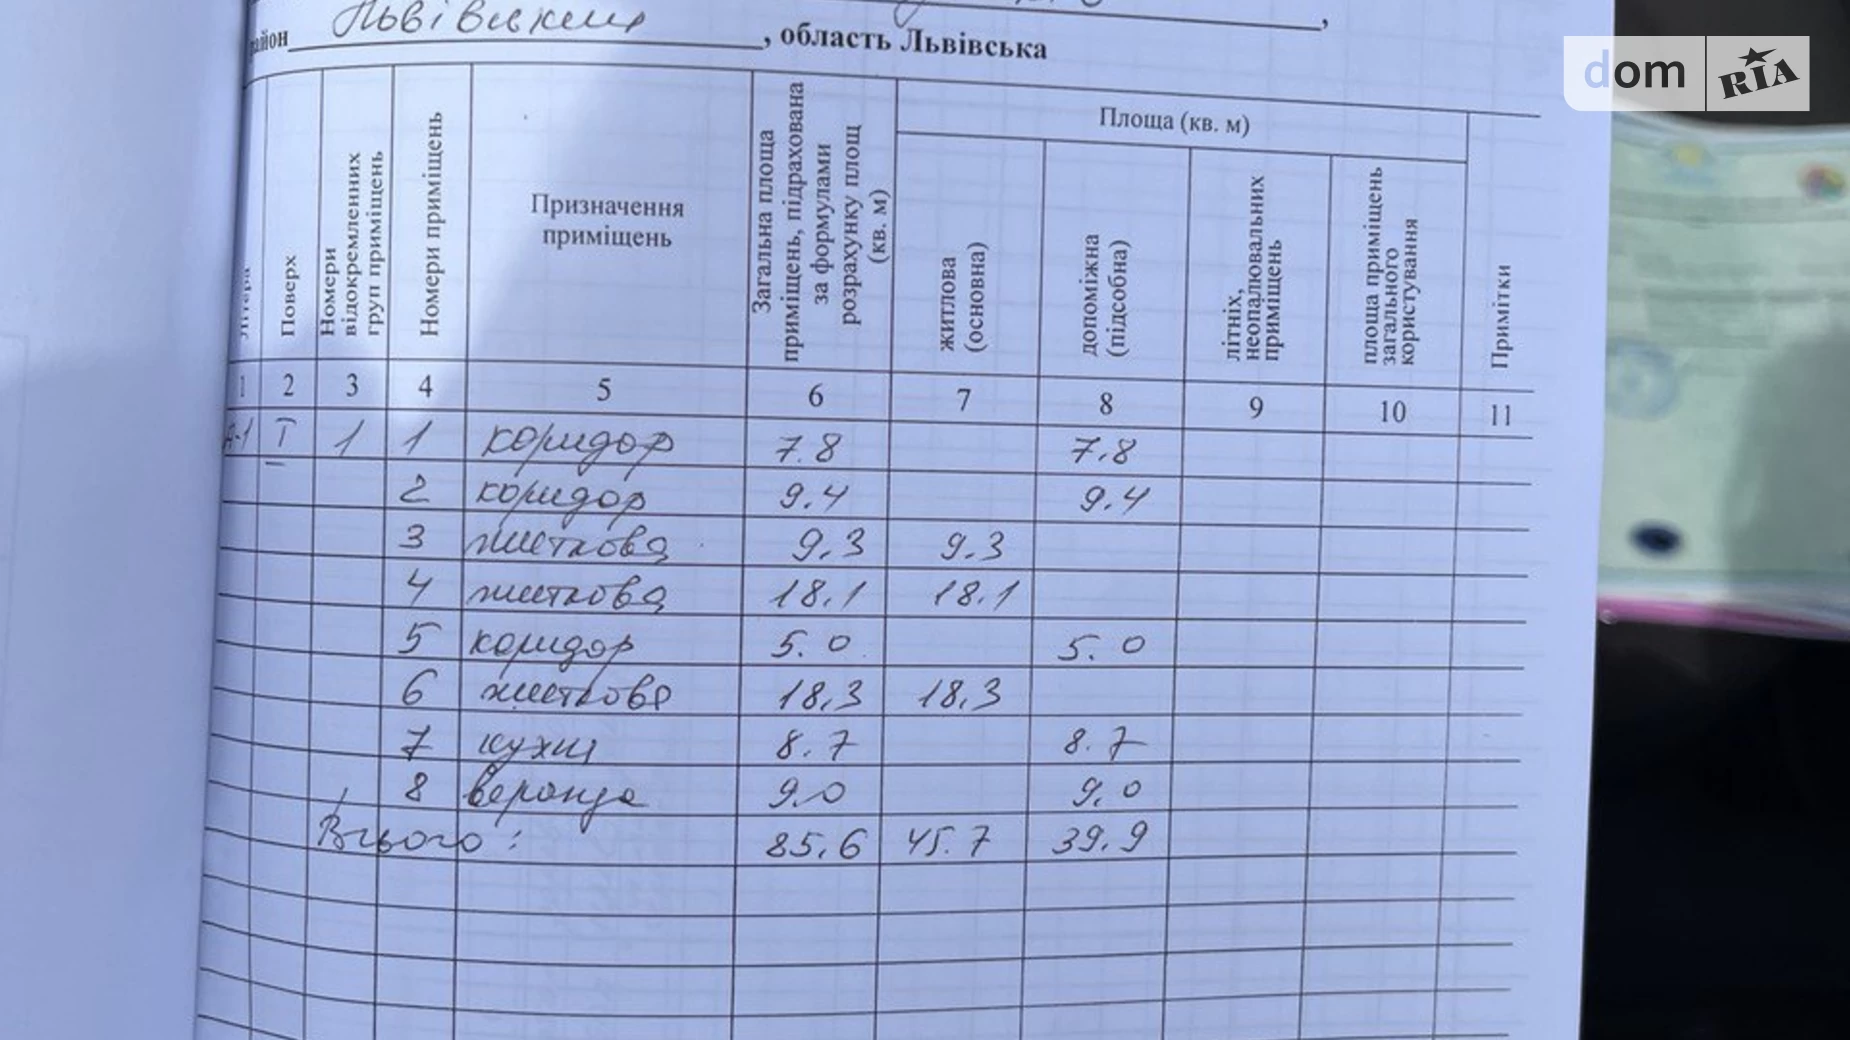 район Львівський, область Львівська
dom RIA
Літера
Поверх
Номери відокремленних груп приміщень
Номери приміщень
Призначення приміщень
Загальна площа приміщень, підрахована за формулами розрахунку площ (кв. м)
Площа (кв. м)
житлова (основна)
допоміжна (підсобна)
літніх, неопалювальних приміщень
площа приміщень загального користування
Примітки
1 2 3 4 5 6 7 8 9 10 11
А-1 I 1 1 коридор 7.8 7.8
2 коридор 9.4 9.4
3 житлова 9.3 9.3
4 житлова 18.1 18.1
5 коридор 5.0 5.0
6 житлова 18,3 18,3
7 кухня 8.7 8.7
8 веранда 9.0 9.0
Всього: 85,6 45.7 39.9